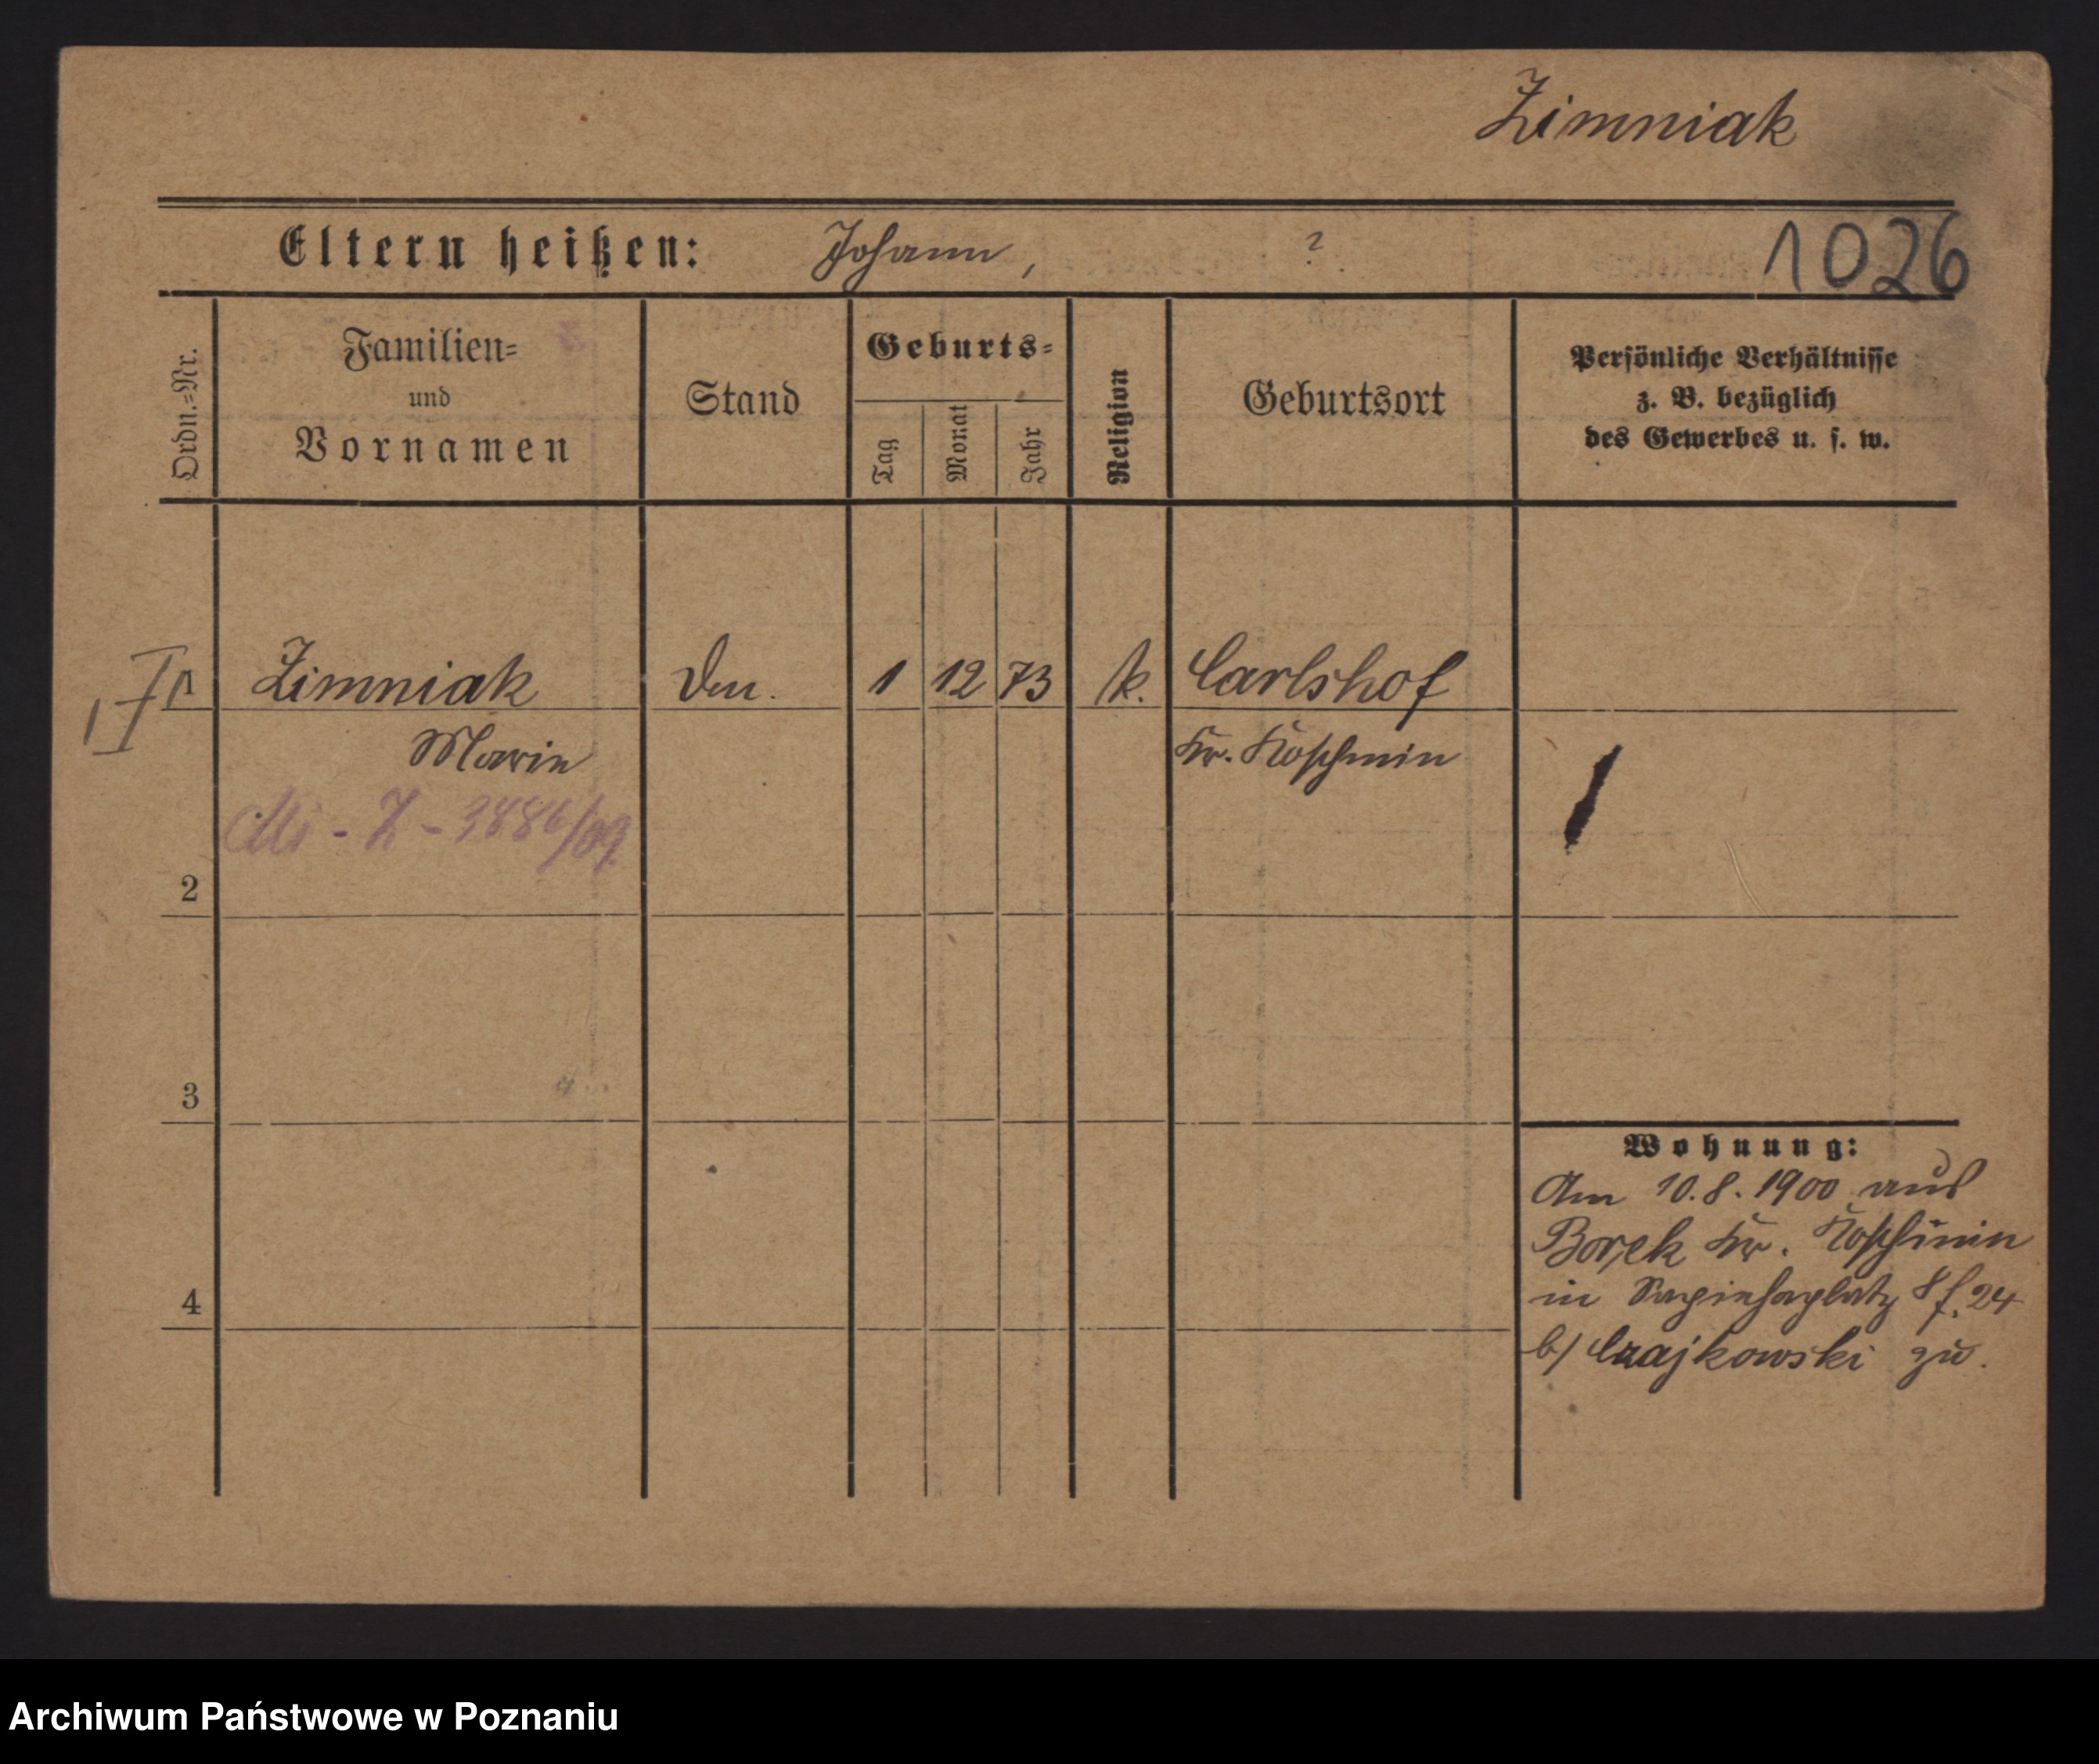 Zimniak
1026
Eltern heißen: Johann, ?
Ordn.=Nr.
Familien=
und
Vornamen
Stand
Geburts=
Tag
Monat
Jahr
Religion
Geburtsort
Persönliche Verhältnisse
z. B. bezüglich
des Gewerbes u. s. w.
1 Zimniak 1 12 73 k. Carlshof
Marie Kr. Koschmin
- Z - 3886/09.
2
3
Wohnung:
Am 10.8.1900 aus
Borek Kr. Koschmin
4
in Sapiehaplatz 8 f. 24
b/ Czajkowski zu.
Archiwum Państwowe w Poznaniu